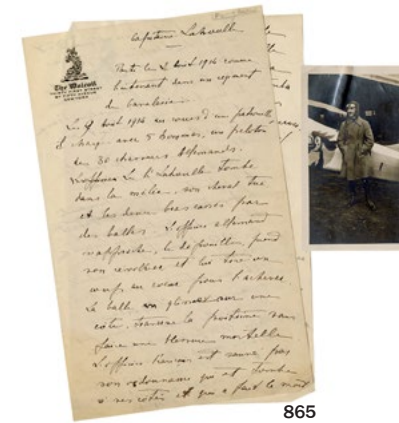 Capitaine Lahoulle
The Wolcott
THIRTY FIRST STREET
BY FIFTH AVENUE
NEW YORK
Parti le 2 Août 1914 comme
lieutenant dans un régiment
de cavalerie.
Le 9 Août 1914 au cours d'une patrouille
il charge avec 5 hommes, un peloton
de 30 chasseurs Allemands.
L'officier Lt Lahoulle tombe
dans la mêlée, son cheval tué
et les deux bras cassés par
des balles. L'officier allemand
s'approche, le dépouille, prend
son revolver et lui tire un
coup au cœur pour l'achever.
La balle, en glissant sur une
côte, traverse la poitrine sans
faire une blessure mortelle
L'officier français est sauvé par
son ordonnance qui est tombé
à ses côtés et qui a fait le mort
865